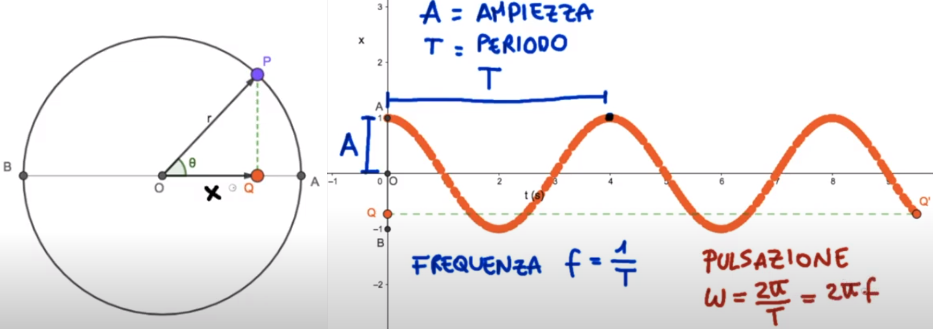 P
r
θ
B
O
x
Q
A
A = AMPIEZZA
T = PERIODO
T
x
3
2
A
1
A
-1
0
O
2
3
4
5
6
7
8
9
t (s)
Q
Q'
-1
B
-2
FREQUENZA f = 1/T
PULSAZIONE
ω = 2π/T = 2πf